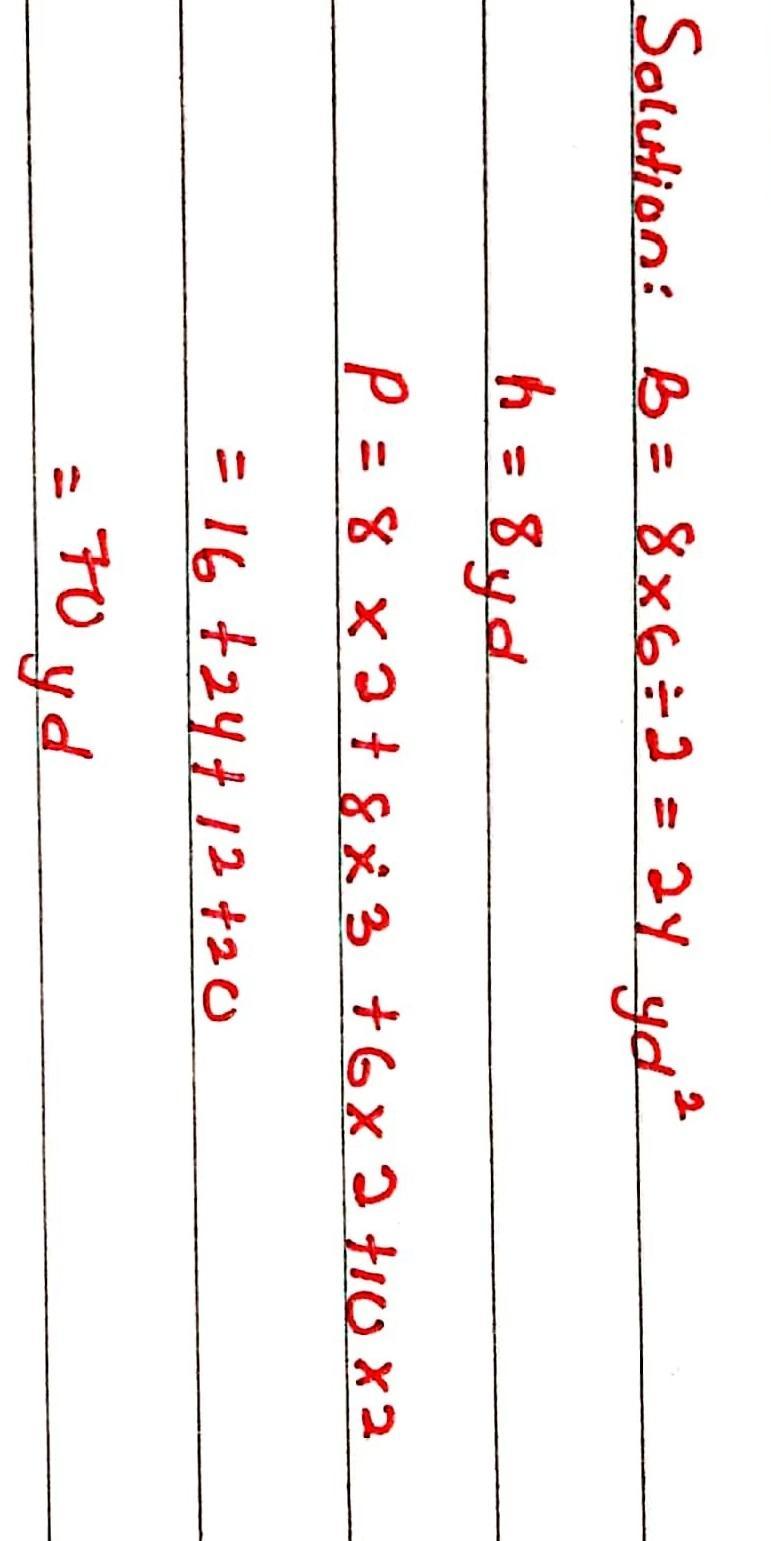 Solution: B = 8×6÷2 = 24 yd²
h = 8 yd
P = 8 × 2 + 8×3 + 6×2 + 10×2
= 16 + 24 + 12 + 20
= 70 yd